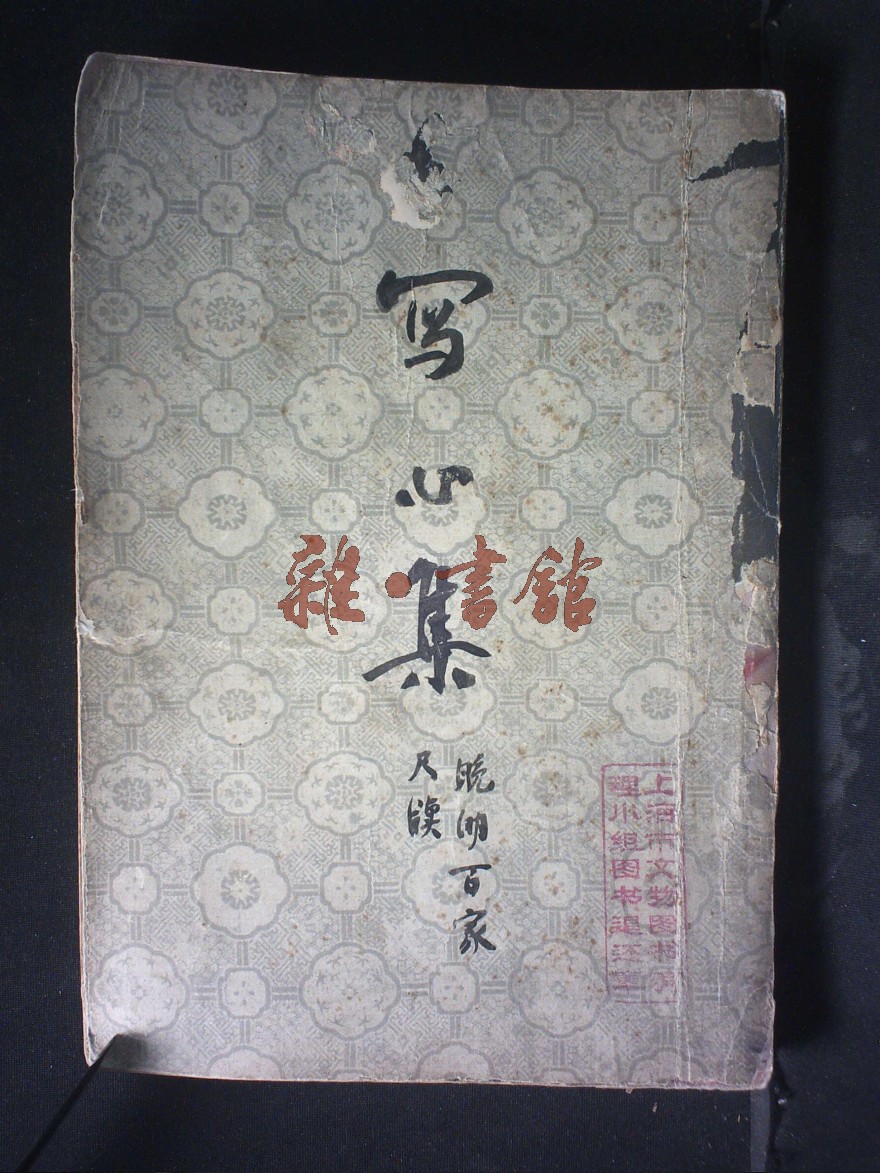 写心集
晚明百家
尺牍
雜·書館
上海市文物图书清
理小组图书退还章